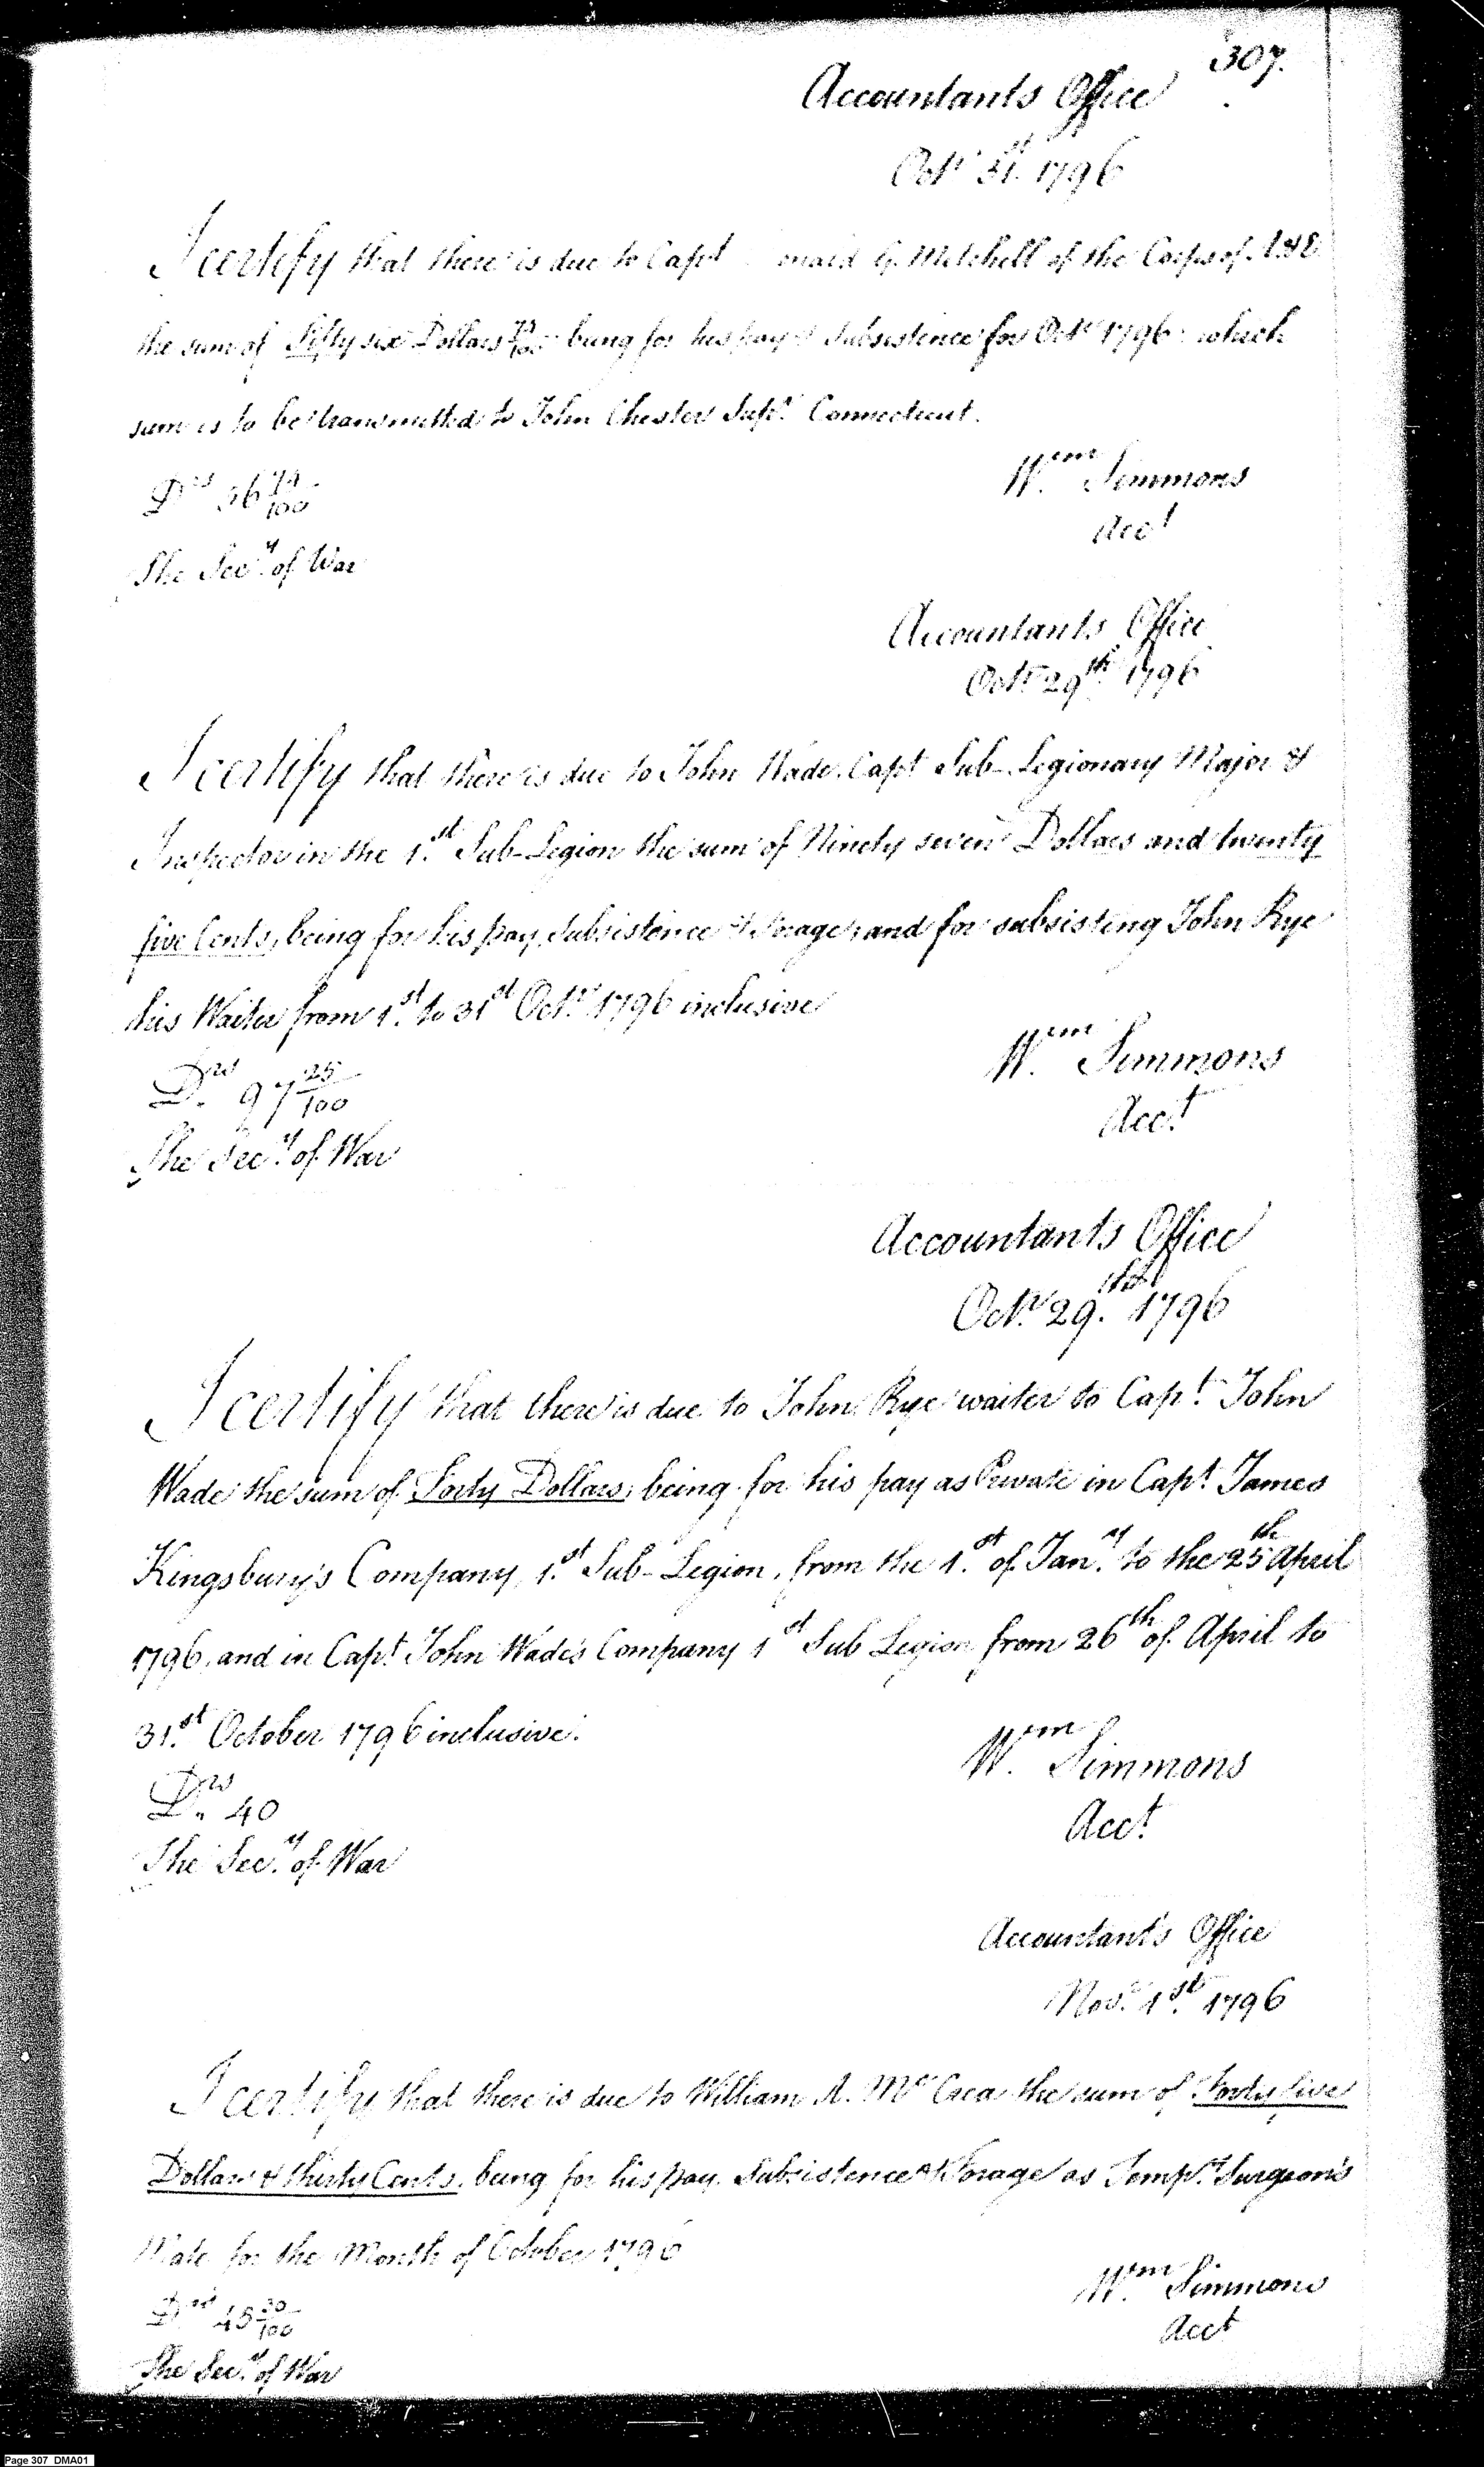 307.
Accountants Office
Octr 31st 1796
I certify that there is due to Capt G. Mitchell of the Corps of A & E
the sum of Fifty six Dollars 74/100 being for his pay & subsistence for Octr 1796 which
sum is to be transmitted to John Chester Supr. Connecticut.
Wm Simmons
Drs 56 74/100
Acct
The Secy. of War
Accountants Office
Octr 29th 1796
I certify that there is due to John Wade Capt Sub-Legionary Major &
Inspector in the 1.st Sub-Legion the sum of Ninety seven Dollars and twenty
five Cents, being for his pay, subsistence & forage, and for subsisting John Rye
his Waiter from 1.st to 31st Octr. 1796 inclusive
Wm Simmons
Drs. 97 25/100
Acct.
The Secy. of War
Accountants Office
Octr. 29.th 1796
I certify that there is due to John Rye waiter to Capt. John
Wade the sum of Forty Dollars, being for his pay as Private in Capt. James
Kingsbury's Company, 1.st Sub-Legion, from the 1.st of Jany. to the 25th April
1796, and in Capt. John Wade's Company 1st Sub Legion from 26th of April to
31.st October 1796 inclusive.
Wm. Simmons
Drs. 40
Acct.
The Secy. of War
Accountant's Office
Novr. 1st. 1796
I certify that there is due to William A. McCrea the sum of Forty five
Dollars & thirty Cents, being for his pay, Subsistence & Forage as Tempy. Surgeon's
Mate for the Month of October 1796
Wm. Simmons
Drs 45 30/100
Acct
The Secy. of War
Page 307 DMA01